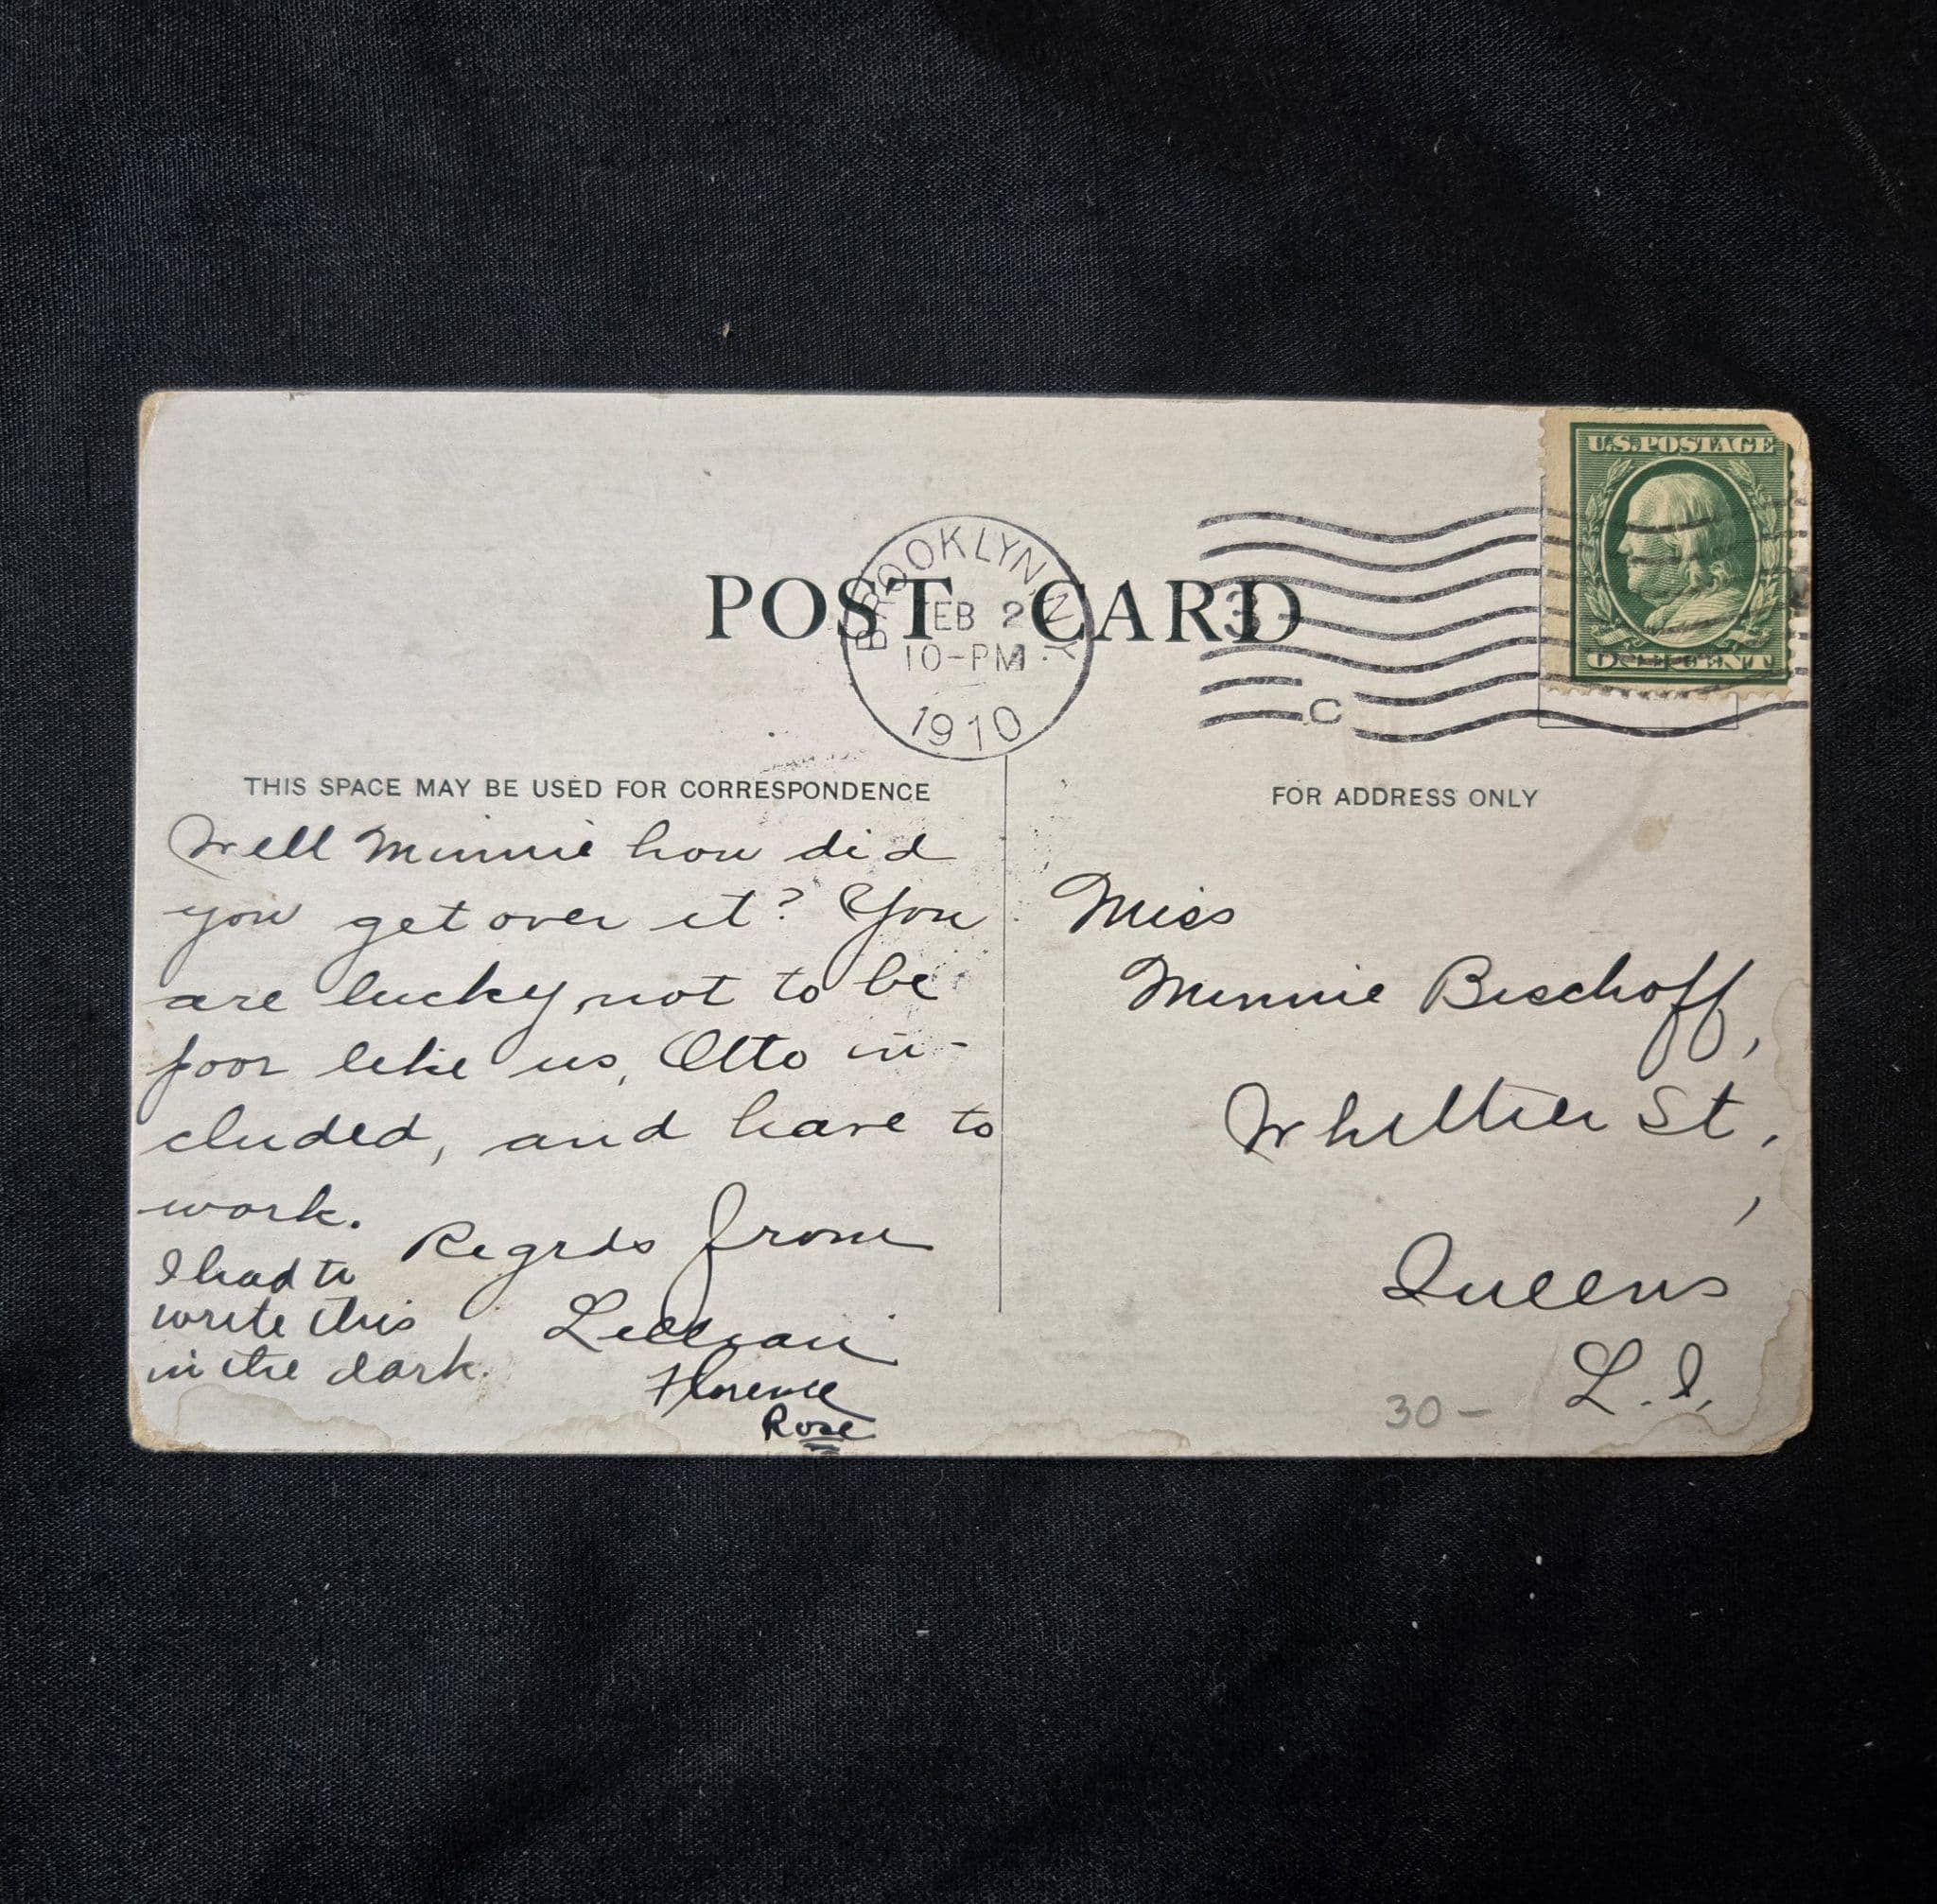 U.S. POSTAGE
ONE CENT
BROOKLYN, N.Y.
FEB 2
10-PM
1910
3
C
POST CARD
THIS SPACE MAY BE USED FOR CORRESPONDENCE
Well Minnie how did
you get over it? You
are lucky, not to be
poor like us, Otto in-
cluded, and have to
work.
Regrds from
Lillian
Florence
Rose
I had to
write this
in the dark.
FOR ADDRESS ONLY
Miss
Minnie Bischoff,
Whittier St,
Queens
L.I.
30-